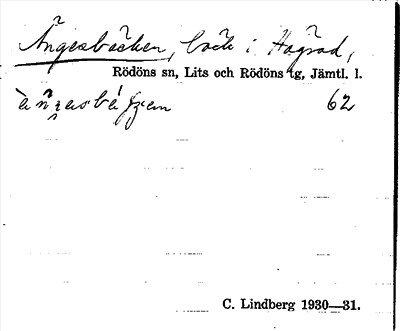 Ängesbäcken, bäck i Högrad,
Rödöns sn, Lits och Rödöns tg, Jämtl. l.
62
C. Lindberg 1930—31.